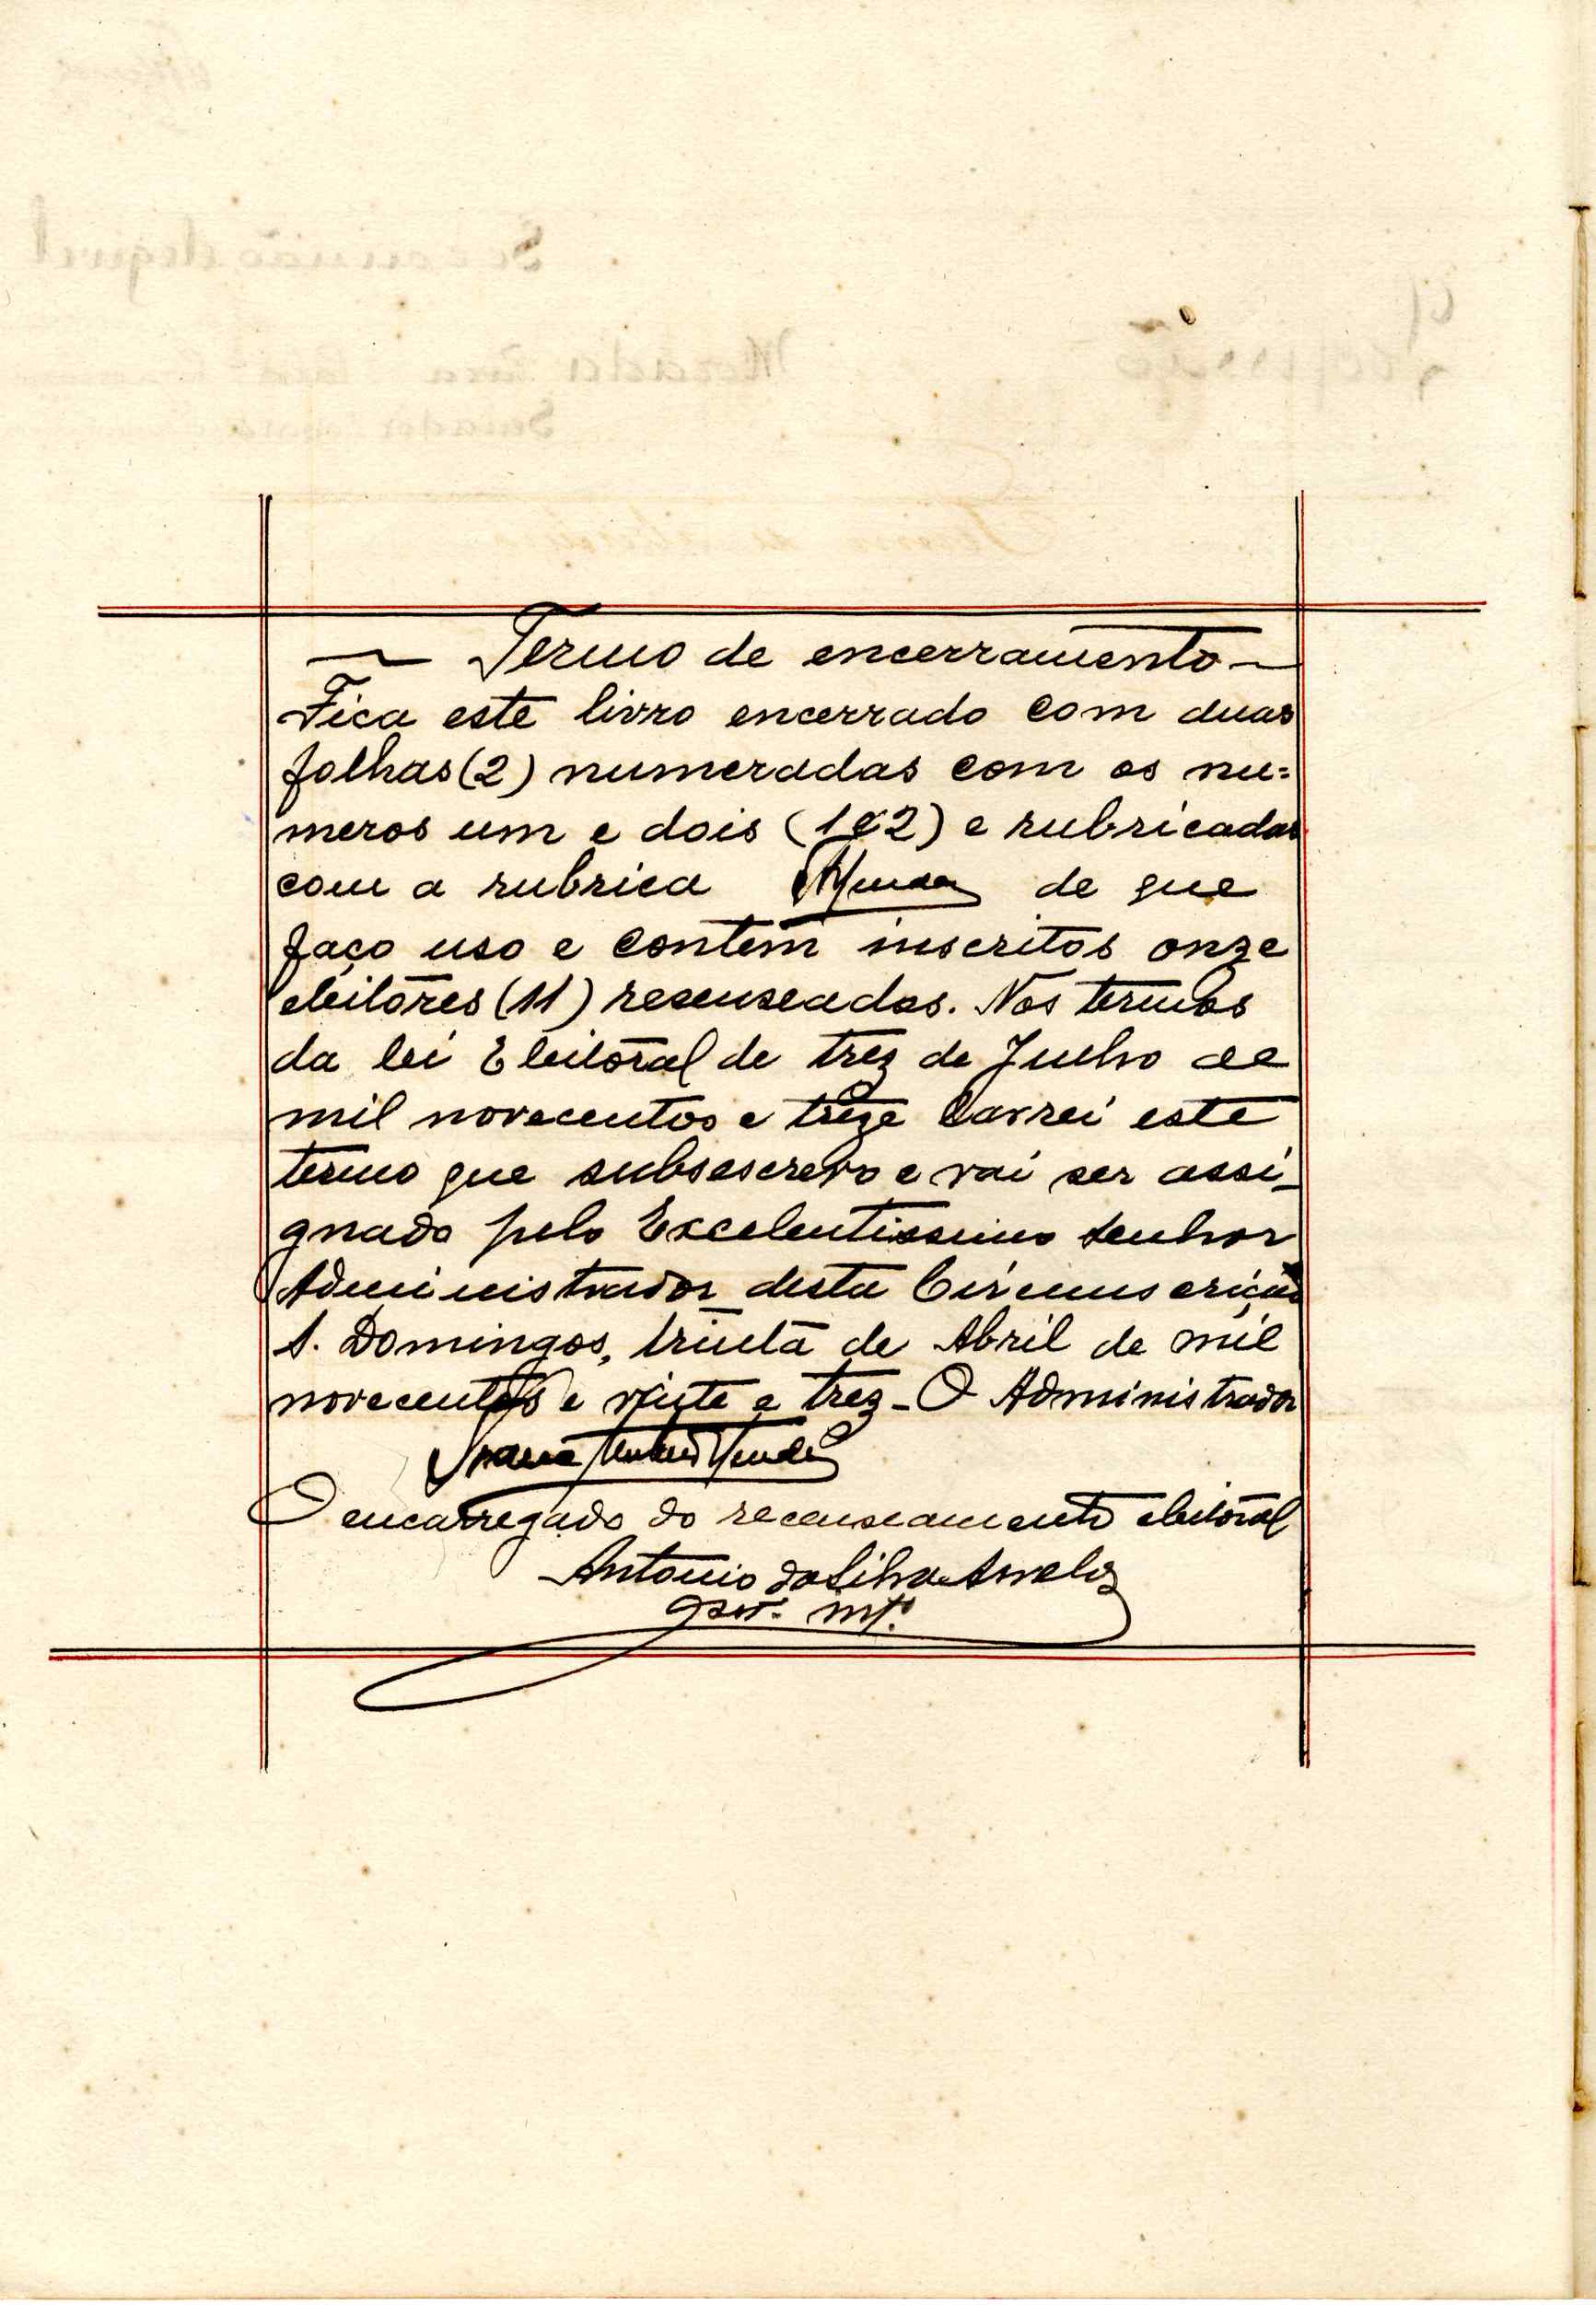 Termo de encerramento
Fica este livro encerrado com duas
folhas (2) numeradas com os nu=
meros um e dois (1 e 2) e rubricadas
com a rubrica de que
faço uso e contêm inscritos onze
eleitores (11) resenseados. Nos termos
da lei Eleitoral de trez de Julho de
mil novecentos e treze lavrei este
termo que subsescrevo e vai ser assi-
gnado pelo Excelentissimo Senhor
Administrador desta Circunscrição
S. Domingos, trinta de Abril de mil
novecentos e vinte e trez - O Administrador
O encarregado do recenseamento eleitoral
Antonio da Silva